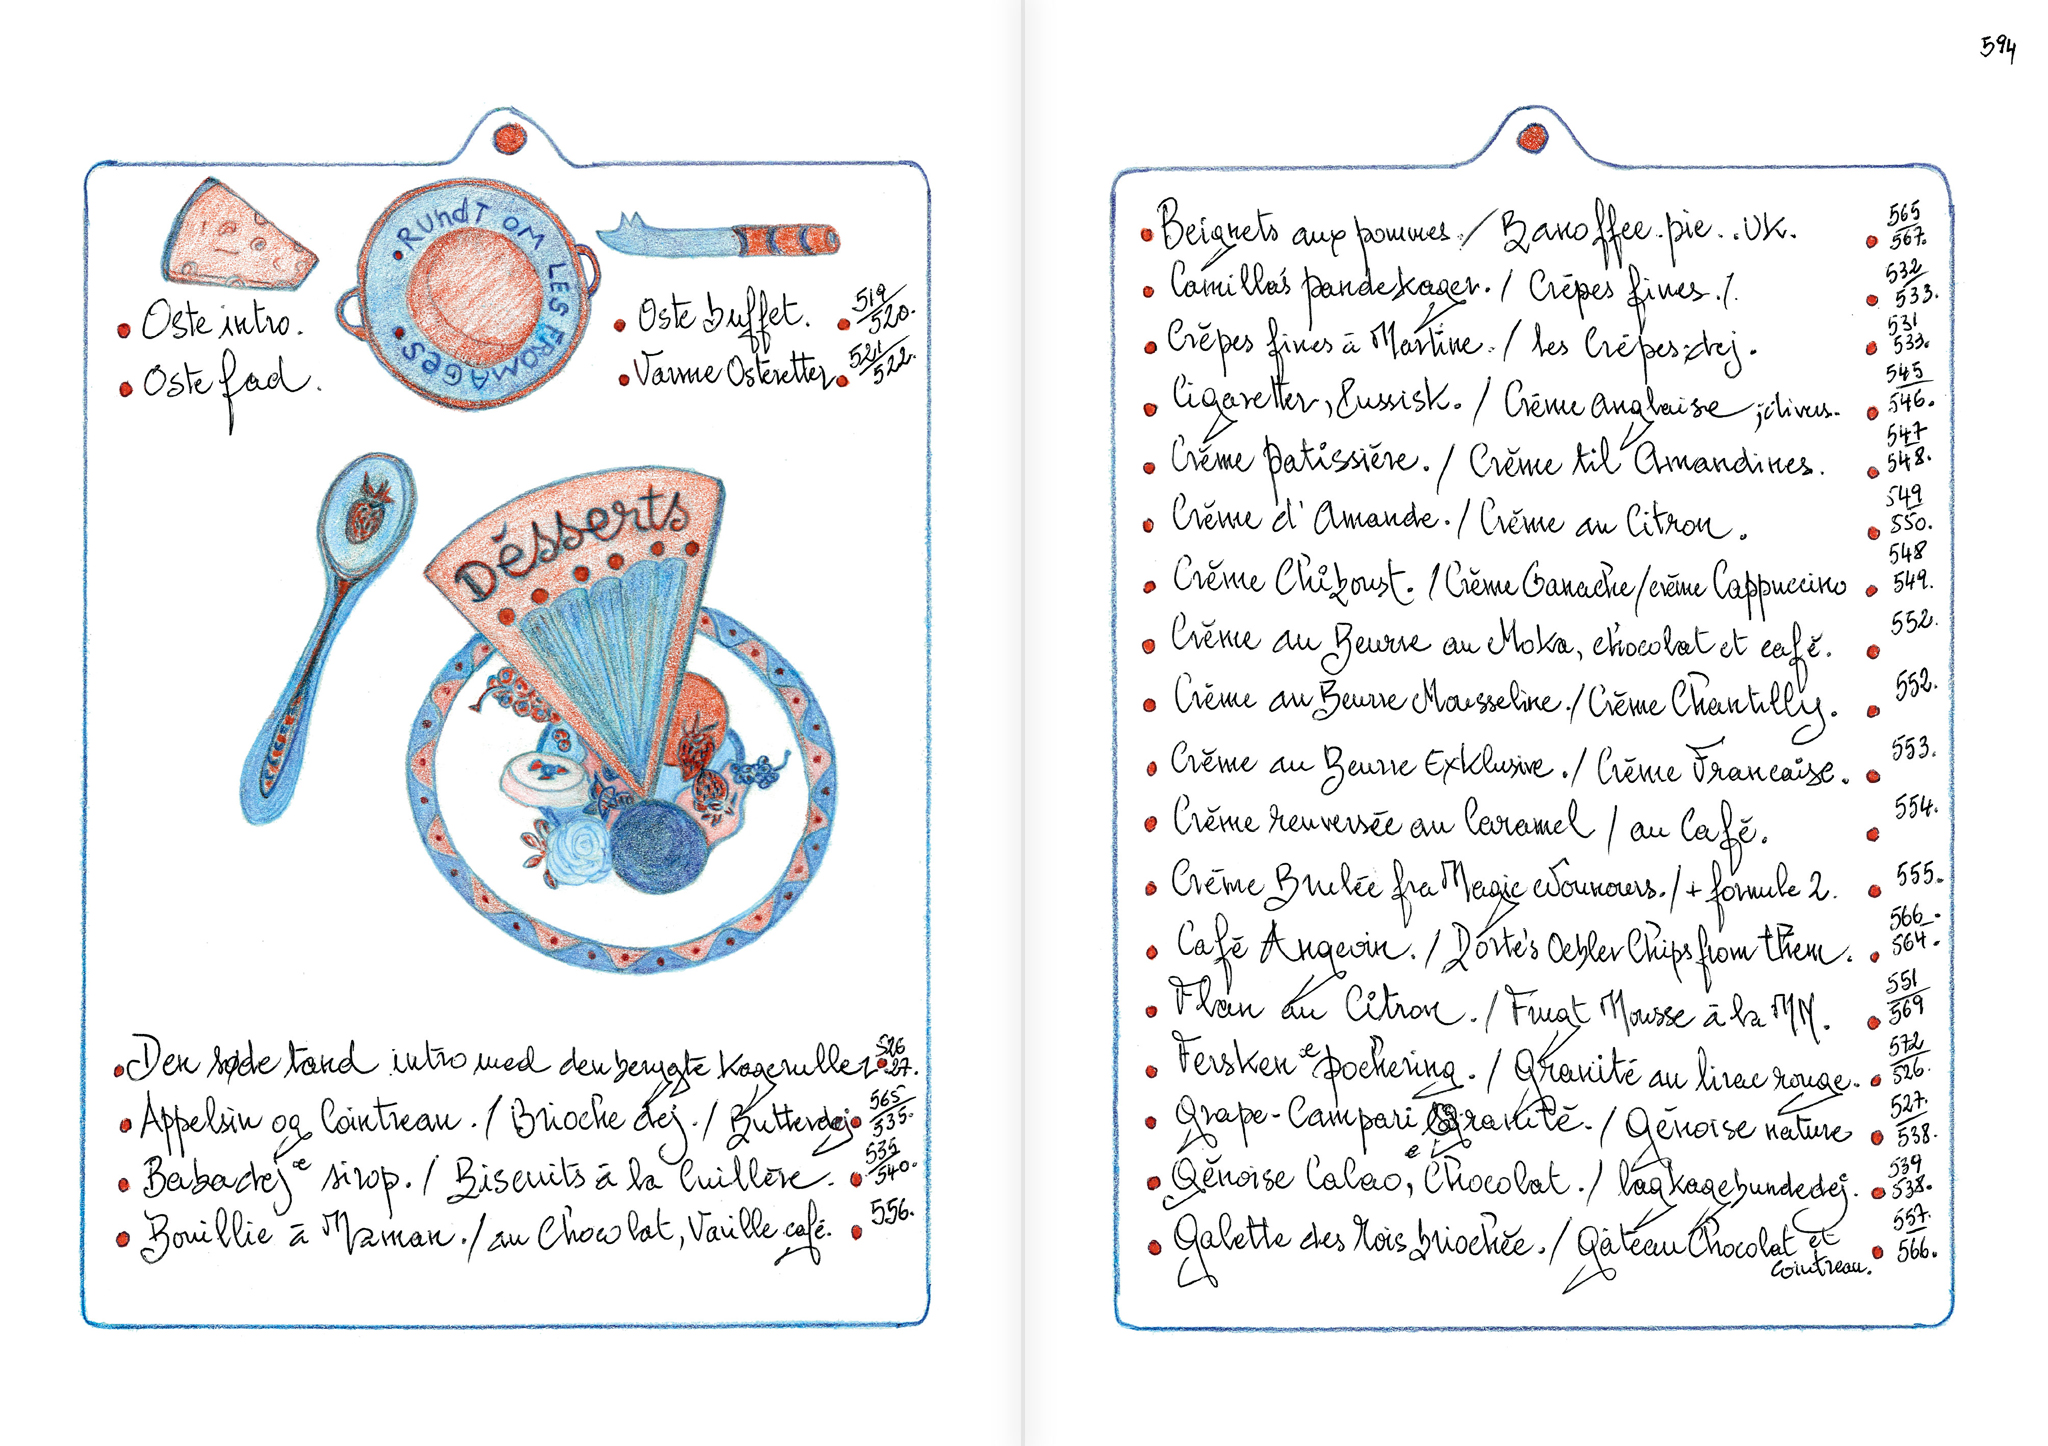 594
• RUNDT OM LES FROMAGES •
• Oste intro.
• Oste fad.
• Oste buffet. • 519/520.
• Varme Osteretter. • 521/522.
Désserts
• Den søde tand intro med den berygte Kagerulle • 526/27.
• Appelsin og Cointreau. / Brioche dej. / Butterdej • 565/535.
• Babadej æ sirop. / Biscuits à la Cuillère. • 535/540.
• Bouillie à Maman. / au Chocolat, Vanille café. • 556.
• Beignets aux pommes. / Banoffee. pie. . UK. • 565/567.
• Camilla's pandekager. / Crêpes fines. /. • 532/533.
• Crêpes fines à Martine. / les Crêpes: dej. • 531/533.
• Cigaretter, Russisk. / Crème anglaise ; divers. • 545/546.
• Crème patissière. / Crème til Amandines. • 547/548.
• Crème d'Amande. / Crème au Citron. • 549/550.
• Crème Chiboust. / Crème Ganache / crème Cappuccino • 548/549.
• Crème au Beurre au Moka, chocolat et café. • 552.
• Crème au Beurre Mousseline. / Crème Chantilly. • 552.
• Crème au Beurre Exklusive. / Crème Francaise. • 553.
• Crème renversée au Caramel / au Café. • 554.
• Crème Brulée fra Magic / + formule 2. • 555.
• Café Angevin. / Dorte's Chips from them. • 566./564.
• Flan au Citron. / Frugt Mousse à la MM. • 551/569
• Fersken æ pochering. / Granité au lirac rouge. • 572/526.
• Grape-Campari Granité. / Génoise nature • 527./538.
• Génoise Cacao, Chocolat. / lagkagebundedej. • 539/538.
• Galette des Rois briochée. / Gâteau Chocolat et Cointreau. • 557./566.